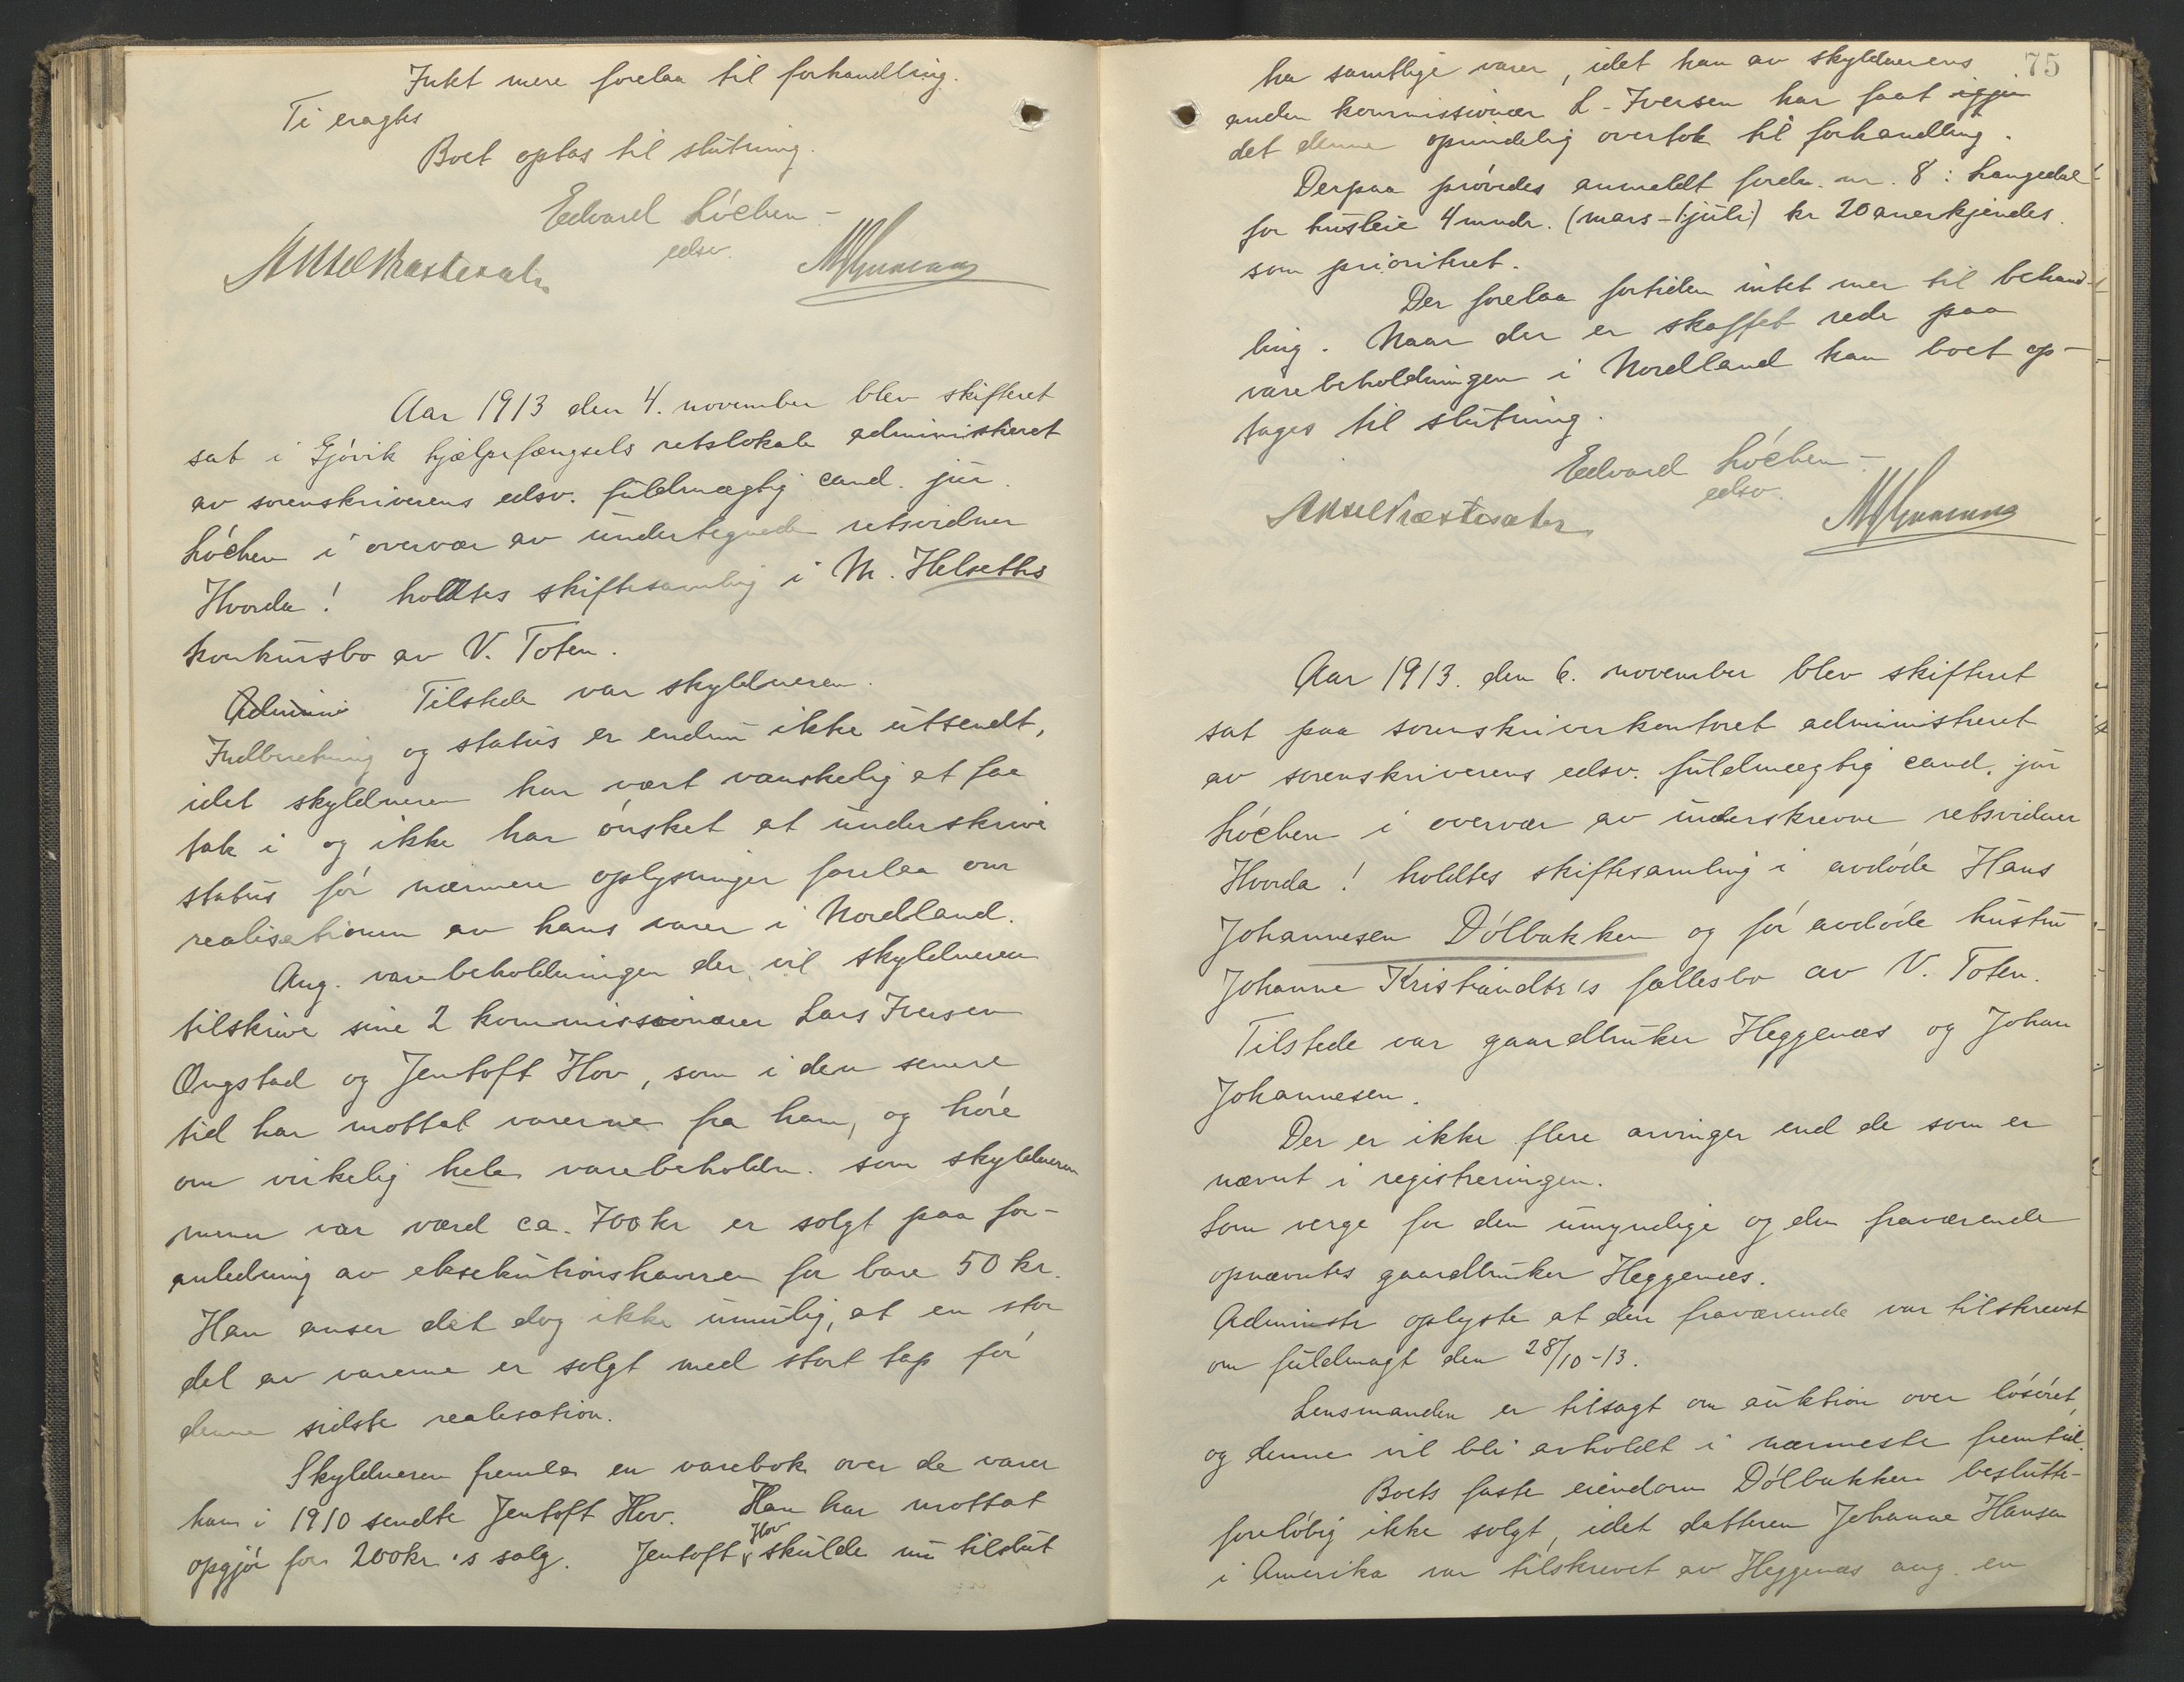 Intet mere forelaa til forhandling.
Ti eragtes
Boet optas til slutning.
Edvard Løchen
edsv.
Aar 1913 den 4. november blev skifteret
sat i Gjøvik hjælpefængsels retslokale administreret
av sorenskriverens edsv. fuldmægtig cand. jur.
Løchen i overvær av undertegnede retsvidner
Hvorda! holdtes skiftesamling i M. Helseths
konkursbo av V. Toten.
Admini Tilstede var skyldneren.
Indberetning og status er endnu ikke utsendt,
idet skyldneren har vært vanskelig at faa
tak i og ikke har ønsket at underskrive
status før nærmere oplysninger forelaa om
realisationen av hans varer i Nordland.
Ang. varebeholdningen der vil skyldneren
tilskrive sine 2 kommissionærer Lars Iversen
Ongstad og Jentoft Hov, som i den senere
tid har mottat varerne fra ham, og høre
om virkelig hele varebeholdn. som skyldneren
mener var værd ca. 700 kr er solgt paa for-
anledning av eksekutionshaveren for bare 50 kr.
Han anser det dog ikke umulig, at en stor
del av varerne er solgt med stort tap før
denne sidste realisation.
Skyldneren fremla en varebok over de varer
han i 1910 sendte Jentoft Hov. Han har mottat
opgjør for 200 kr's salg. Jentoft Hov skulde nu tilslut
75
ha samtlige varer, idet han av skyldnerens
anden kommissionær L. Iversen har faat igjen
det denne oprindelig overtok til forhandling.
Derpaa prøvedes anmeldt fordr. nr. 8: Langedal
for husleie 4 mndr. (mars - 1 juli) kr 20 anerkjendes
som prioritert.
Der forelaa fortiden intet mer til behand-
ling. Naar der er skaffet rede paa
varebeholdningen i Nordland kan boet op-
tages til slutning.
Edvard Løchen
edsv.
Aar 1913. den 6. november blev skifteret
sat paa sorenskriverkontoret administreret
av sorenskriverens edsv. fuldmægtig cand. jur
Løchen i overvær av underskrevne retsvidner
Hvorda! holdtes skiftesamling i avdøde Hans
Johannesen Dølbakken og før avdøde hustru
Johanne Kristiandtr's fællesbo av V. Toten.
Tilstede var gaardbruker Heggenæs og Johan
Johannesen.
Der er ikke flere arvinger end de som er
nævnt i registreringen.
Som verge for den umyndige og den fraværende
opnævntes gaardbruker Heggenæs.
Administr oplyste at den fraværende var tilskrevet
om fuldmagt den 28/10-13.
Lensmanden er tilsagt om auktion over løsøret,
og denne vil bli avholdt i nærmeste fremtid.
Boets faste eiendom Dølbakken beslutte-
foreløbig ikke solgt, idet datteren Johanne Hansen
i Amerika var tilskrevet av Heggenæs ang. en